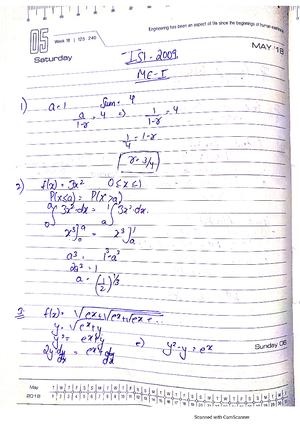 Engineering has been an aspect of life since the beginnings of human existence.
05
Week 18 | 125 240
MAY '18
Saturday
ISI - 2009
ME-I
1) a = 1 Sum = 4
a/(1-r) = 4 => 1/(1-r) = 4
1/4 = 1-r
r = 3/4
2) f(x) = 3x² 0≤x≤1
P(x≤a) = P(x>a)
∫₀ᵃ 3x² dx = ∫ₐ¹ 3x² dx.
x³]₀ᵃ = x³]ₐ¹
a³ = 1³-a³
2a³ = 1
a = (1/2)^1/3
3. f(x) = √(eˣ+√(eˣ+√(eˣ+...
y = √(eˣ+y)
y² = eˣ+y
2y dy/dx = eˣ + dy/dx
y²-y = eˣ
Sunday 06
May
2018
Scanned with CamScanner